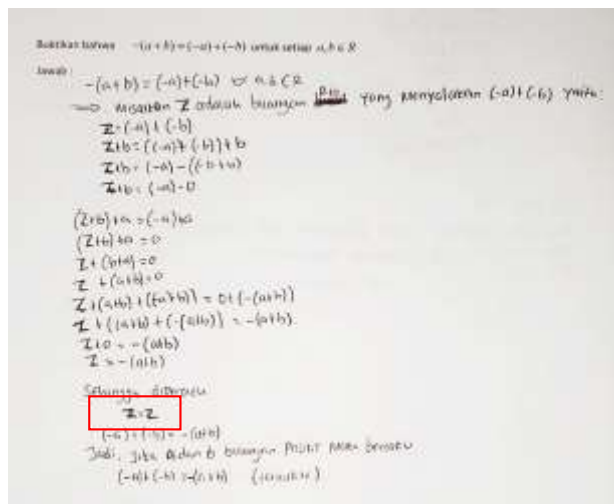 Buktikan bahwa -(a + b) = (-a) + (-b) untuk setiap a, b ∈ R
Jawab :
-(a+b) = (-a)+(-b) ∀ a,b ∈ R
⇒ misalkan Z adalah bilangan yang menyatakan (-a)+(-b) yaitu:
Z=(-a)+(-b)
Z+b = ((-a)+(-b))+b
Z+b = (-a) - ((-b+b)
Z+b = (-a)-0
(Z+b)+a = (-a)+a
(Z+b)+a = 0
Z + (b+a) = 0
Z + (a+b) = 0
Z + (a+b) + (-(a+b)) = 0+(-(a+b))
Z + ((a+b) + (-(a+b)) = -(a+b)
Z+0 = -(a+b)
Z = -(a+b)
Sehingga diperoleh
Z=Z
(-a)+(-b) = -(a+b)
Jadi, jika a dan b bilangan maka berlaku
(-a)+(-b) = -(a+b) (terbukti)